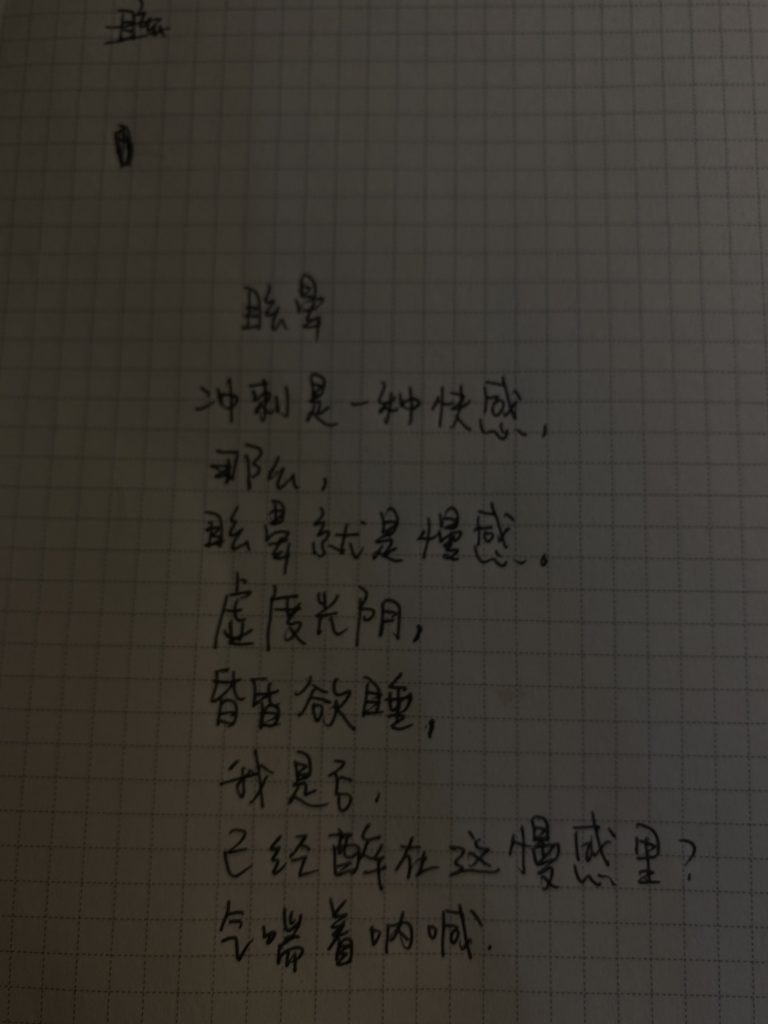 眩晕
冲刺是一种快感,
那么,
眩晕就是慢感。
虚度光阴,
昏昏欲睡,
我是否,
已经醉在这慢感里?
气喘着呐喊.